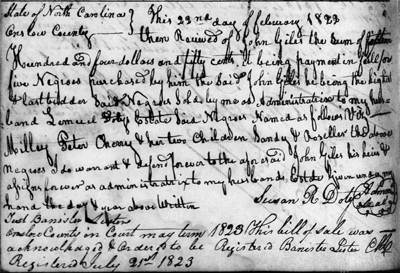 State of North Carolina } This 22nd day of february 1823
Onslow County } then Received of John Giles the Sum of
Hundred and four dollars and fifty cents it being payment in full for
five Negroes purchased by him the Said John Giles he being the highest
and last bidder Said Negroes Sold by me as Administratrix to my hus-
band Lemuel Doty Estate Said Negroes Named as follows Viz
Milley Peter Cherry & her two Children Sandy & Rosseller the above
Negroes I do warrant & defend forever to the aforesaid John Giles his heirs &
assigns forever as administratrix to my husbands Estate given under my
hand the day & year above Written
Susan R Doty
Test Banister Lester
Onslow County in Court may term 1823 This bill of sale was
acknowledged & Ordered to be Registered Banister Lester Clk
Registered July 21st 1823